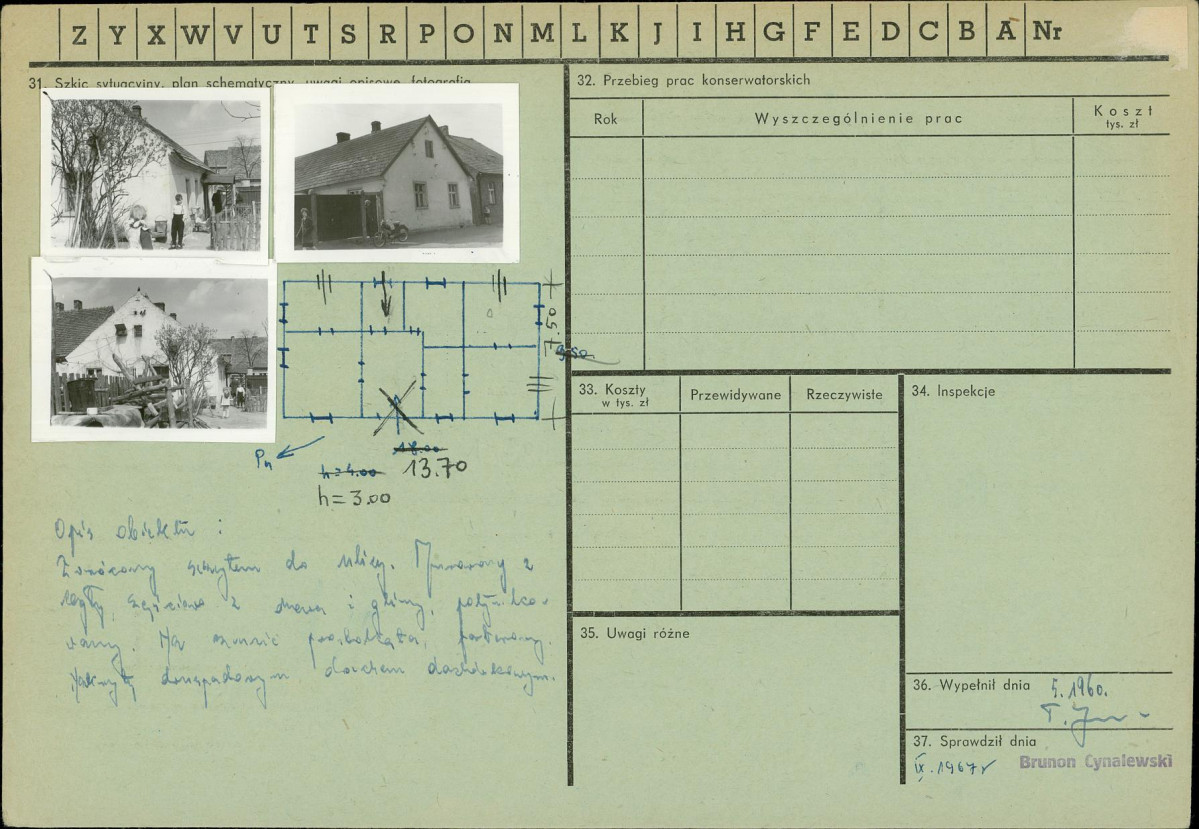 Z Y X W V U T S R P O N M L K J I H G F E D C B A Nr
31. Szkic sytuacyjny, plan schematyczny, uwagi opisowe, fotografia
32. Przebieg prac konserwatorskich
Rok
Wyszczególnienie prac
Koszt
tys. zł
7.50
9.50
Pn
h=4.00
18.00
13.70
h=3.00
Opis obiektu :
Zwrócony szczytem do ulicy. Murowany z
cegły, częściowo z drewna i gliny, potynko-
wany. Na rzucie prostokąta, parterowy.
Nakryty dwuspadowym dachem dachówkowym.
33. Koszty
w tys. zł
Przewidywane
Rzeczywiste
34. Inspekcje
35. Uwagi różne
36. Wypełnił dnia
5.1960.
37. Sprawdził dnia
IX.1967r
Brunon Cynalewski